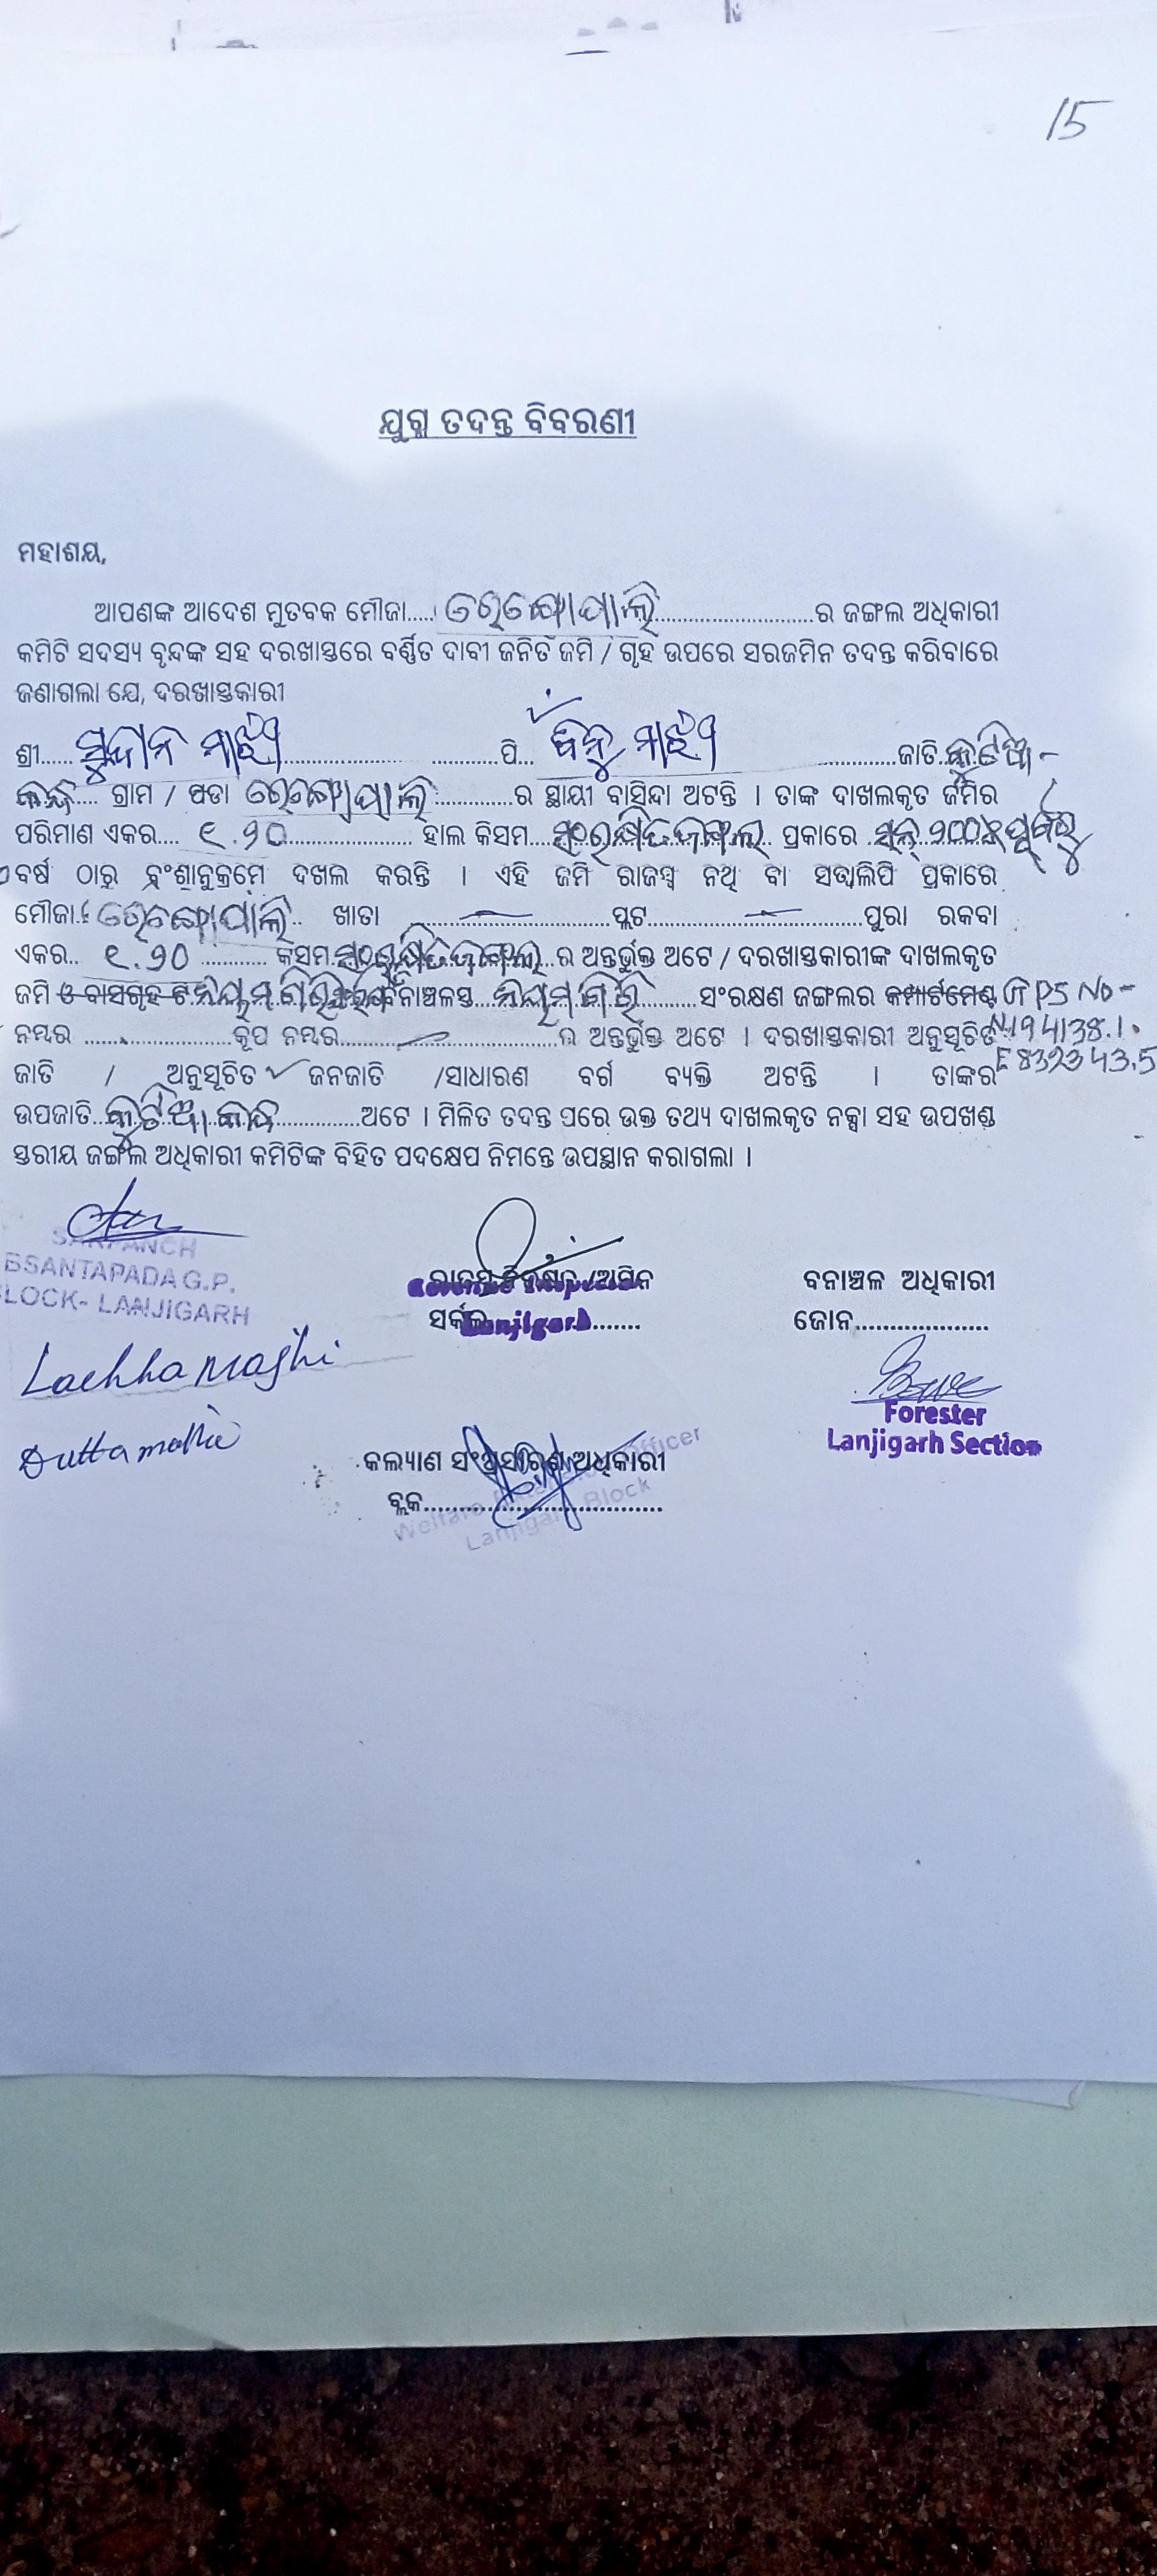 15
ଯୁଗ୍ମ ତଦନ୍ତ ବିବରଣୀ
ମହାଶୟ,
ଆପଣଙ୍କ ଆଦେଶ ମୁତବକ ମୌଜା..... ର ଜଙ୍ଗଲ ଅଧିକାରୀ
କମିଟି ସଦସ୍ୟ ବୃନ୍ଦଙ୍କ ସହ ଦରଖାସ୍ତରେ ବର୍ଣ୍ଣିତ ଦାବୀ ଜନିତ ଜମି / ଗୃହ ଉପରେ ସରଜମିନ ତଦନ୍ତ କରିବାରେ
ଜଣାଗଲା ଯେ, ଦରଖାସ୍ତକାରୀ
ଶ୍ରୀ...... ସୁଦାନ ମାଝୀ ............ପି... ବିନୁ ମାଝୀ ............ଜାତି.. କୁଟିଆ -
କନ୍ଧ.... ଗ୍ରାମ / ପଡା .............ର ସ୍ଥାୟୀ ବାସିନ୍ଦା ଅଟନ୍ତି । ତାଙ୍କ ଦାଖଲକୃତ ଜମିର
ପରିମାଣ ଏକର.... ୧.୨୦ .................... ହାଲ କିସମ... ସଂରକ୍ଷିତ ଜଙ୍ଗଲ ପ୍ରକାରେ ସନ୍ ୨୦୦୫ ପୂର୍ବରୁ
ବର୍ଷ ଠାରୁ ବଂଶାନୁକ୍ରମେ ଦଖଲ କରନ୍ତି । ଏହି ଜମି ରାଜସ୍ୱ ନଥି ବା ସତ୍ତ୍ୱଲିପି ପ୍ରକାରେ
ମୌଜା.. ଖାତା ....................ପ୍ଲଟ......................ପୁରା ରକବା
ଏକର.. ୧.୨୦ ........... କିସମ.. ସଂରକ୍ଷିତ ଜଙ୍ଗଲ ର ଅନ୍ତର୍ଭୁକ୍ତ ଅଟେ / ଦରଖାସ୍ତକାରୀଙ୍କ ଦାଖଲକୃତ
ଜମି ଓ ବାସଗୃହ ଟି ନିୟମଗିରି ବନାଞ୍ଚଳସ୍ତ.. ନିୟମଗିରି ........ସଂରକ୍ଷଣ ଜଙ୍ଗଲର କମ୍ପାର୍ଟମେଣ୍ଟ GPS No -
ନମ୍ବର ......................କୂପ ନମ୍ବର..................................ର ଅନ୍ତର୍ଭୁକ୍ତ ଅଟେ । ଦରଖାସ୍ତକାରୀ ଅନୁସୂଚିତ N194138.1
ଜାତି / ଅନୁସୂଚିତ ✓ ଜନଜାତି /ସାଧାରଣ ବର୍ଗ ବ୍ୟକ୍ତି ଅଟନ୍ତି । ତାଙ୍କର E832343.5
ଉପଜାତି.. କୁଟିଆ କନ୍ଧ .............ଅଟେ । ମିଳିତ ତଦନ୍ତ ପରେ ଉକ୍ତ ତଥ୍ୟ ଦାଖଲକୃତ ନକ୍ସା ସହ ଉପଖଣ୍ଡ
ସ୍ତରୀୟ ଜଙ୍ଗଲ ଅଧିକାରୀ କମିଟିଙ୍କ ବିହିତ ପଦକ୍ଷେପ ନିମନ୍ତେ ଉପସ୍ଥାନ କରାଗଲା ।
SARPANCH
BSANTAPADA G.P.
BLOCK- LANJIGARH
ରାଜସ୍ୱ ନିରୀକ୍ଷକ /ଅମିନ
Revenue Inspector
ସର୍କଲ....................
Lanjigarh
ବନାଞ୍ଚଳ ଅଧିକାରୀ
ଜୋନ...................
Lachha Majhi
Forester
Lanjigarh Section
Dutta
କଲ୍ୟାଣ ସଂପ୍ରସାରଣ ଅଧିକାରୀ
ବ୍ଲକ..................................
Welfare Extension Officer
Lanjigarh Block